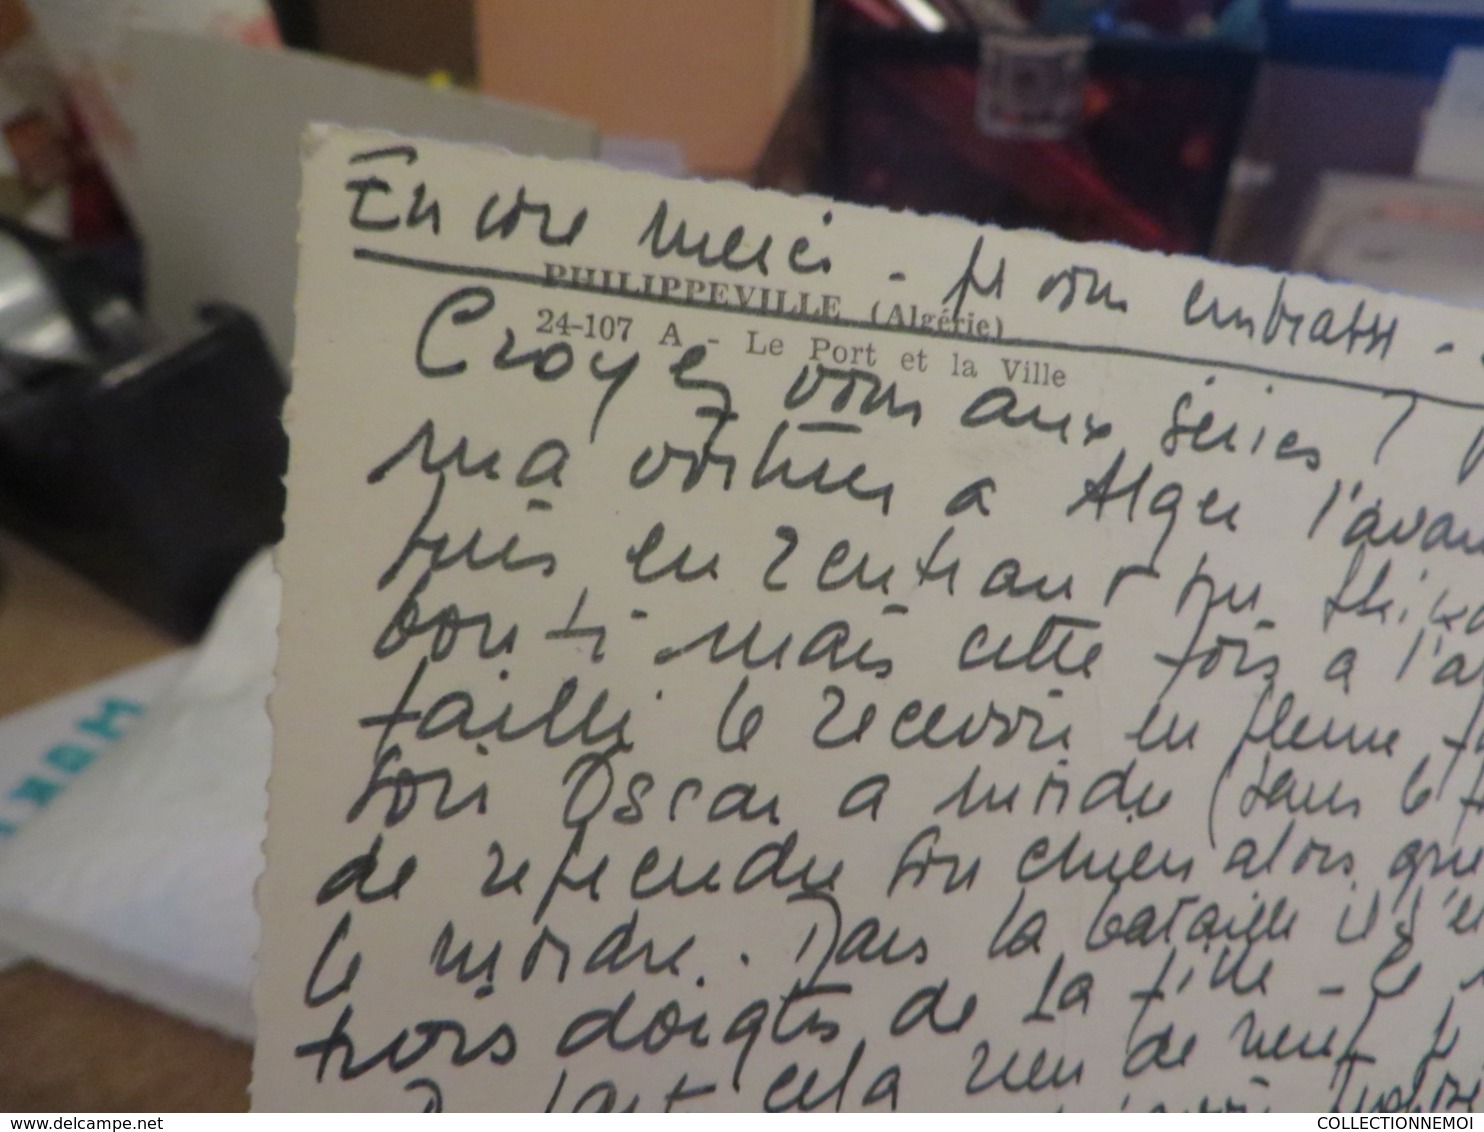 Encore merci - je vous embrasse -
PHILIPPEVILLE (Algérie)
24-107 A - Le Port et la Ville
Croyez vous aux séries ?
ma voiture a Alger l'avan
puis en rentrant
mais cette fois a l'a
failli le recevoir en pleine
soir Oscar a mordu (dans le
de defendre son chien alors que
le mordre. Dans la bataille il s'e
trois doigts de la fille - Ce
fait cela rien de neuf je
MAKE
COLLECTIONNEMOI